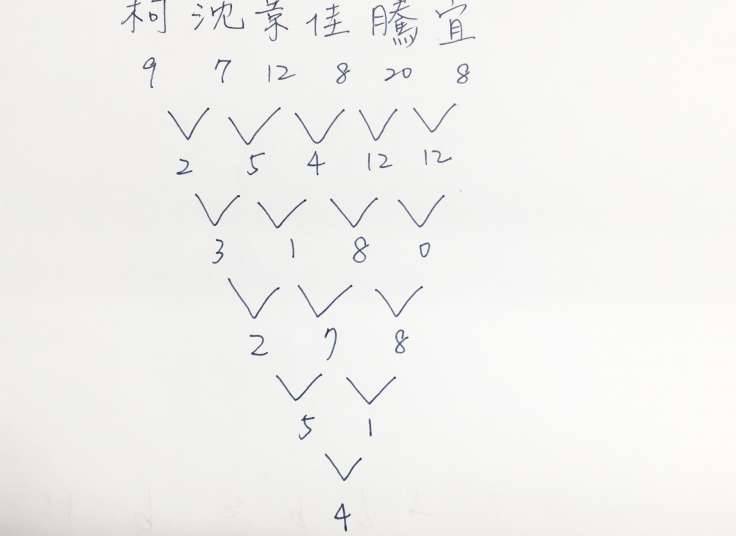 柯 沈 景 佳 騰 宜
9 7 12 8 20 8
2 5 4 12 12
3 1 8 0
2 7 8
5 1
4